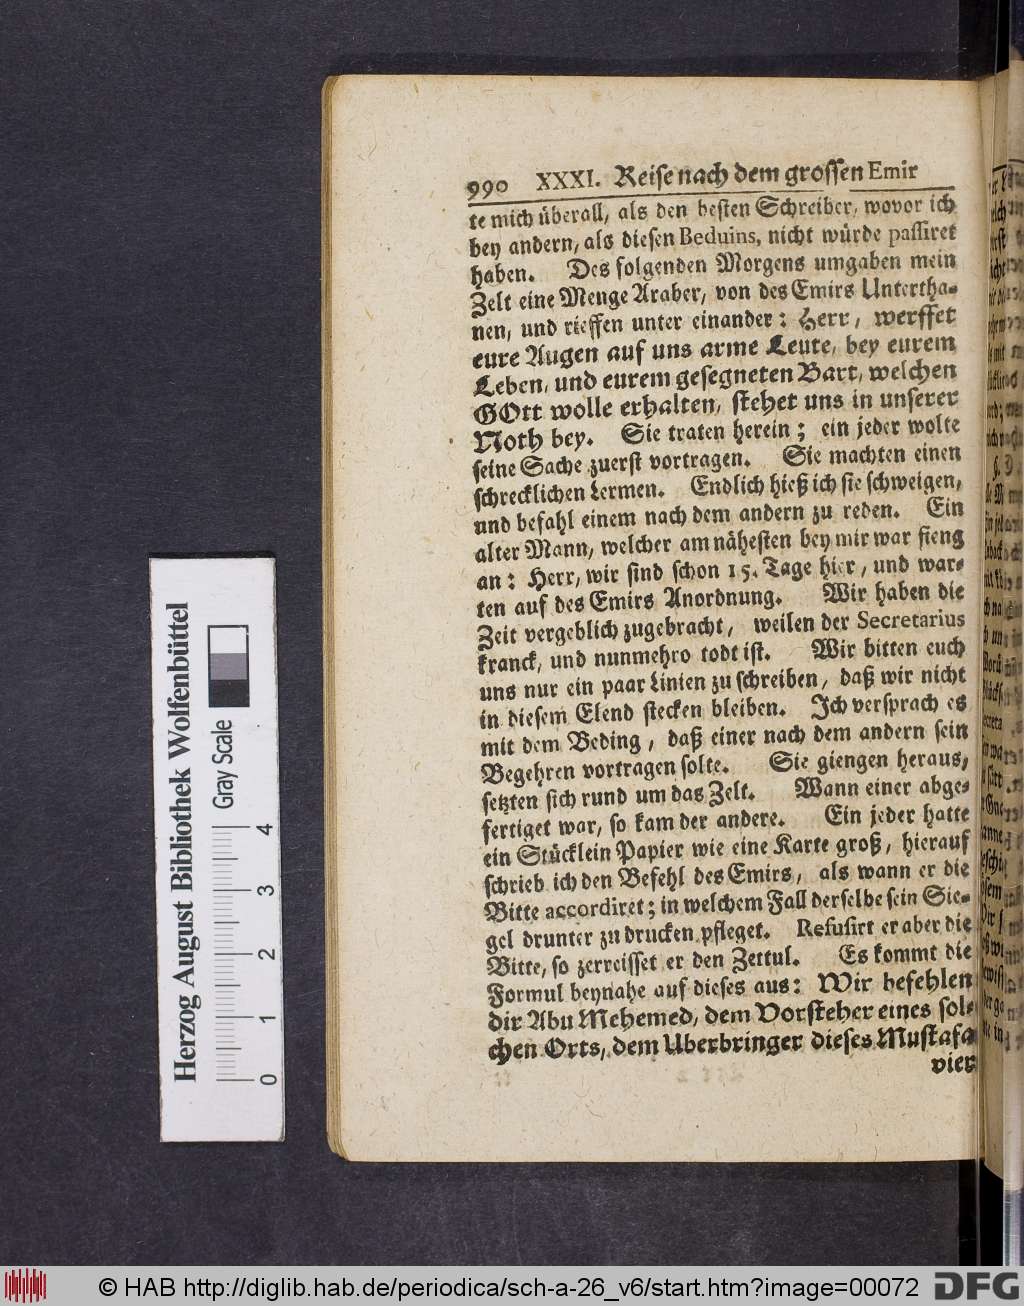 990 XXXI. Reise nach dem grossen Emir
te mich überall, als den besten Schreiber, wovor ich
bey andern, als diesen Beduins, nicht würde passiret
haben. Des folgenden Morgens umgaben mein
Zelt eine Menge Araber, von des Emirs Untertha-
nen, und rieffen unter einander: Herr, werffet
eure Augen auf uns arme Leute, bey eurem
Leben, und eurem gesegneten Bart, welchen
GOtt wolle erhalten, stehet uns in unserer
Noth bey. Sie traten herein; ein jeder wolte
seine Sache zuerst vortragen. Sie machten einen
schrecklichen Lermen. Endlich hieß ich sie schweigen,
und befahl einem nach dem andern zu reden. Ein
alter Mann, welcher am nähesten bey mir war fieng
an: Herr, wir sind schon 15. Tage hier, und war-
ten auf des Emirs Anordnung. Wir haben die
Zeit vergeblich zugebracht, weilen der Secretarius
kranck, und nunmehro todt ist. Wir bitten euch
uns nur ein paar Linien zu schreiben, daß wir nicht
in diesem Elend stecken bleiben. Ich versprach es
mit dem Beding, daß einer nach dem andern sein
Begehren vortragen solte. Sie giengen heraus,
setzten sich rund um das Zelt. Wann einer abge-
fertiget war, so kam der andere. Ein jeder hatte
ein Stücklein Papier wie eine Karte groß, hierauf
schrieb ich den Befehl des Emirs, als wann er die
Bitte accordiret; in welchem Fall derselbe sein Sie-
gel drunter zu drucken pfleget. Refusirt er aber die
Bitte, so zerreisset er den Zettul. Es kommt die
Formul beynahe auf dieses aus: Wir befehlen
dir Abu Mehemed, dem Vorsteher eines sol-
chen Orts, dem Uberbringer dieses Mustafa
vier
Herzog August Bibliothek Wolfenbüttel
Gray Scale
0 1 2 3 4
© HAB http://diglib.hab.de/periodica/sch-a-26_v6/start.htm?image=00072
DFG